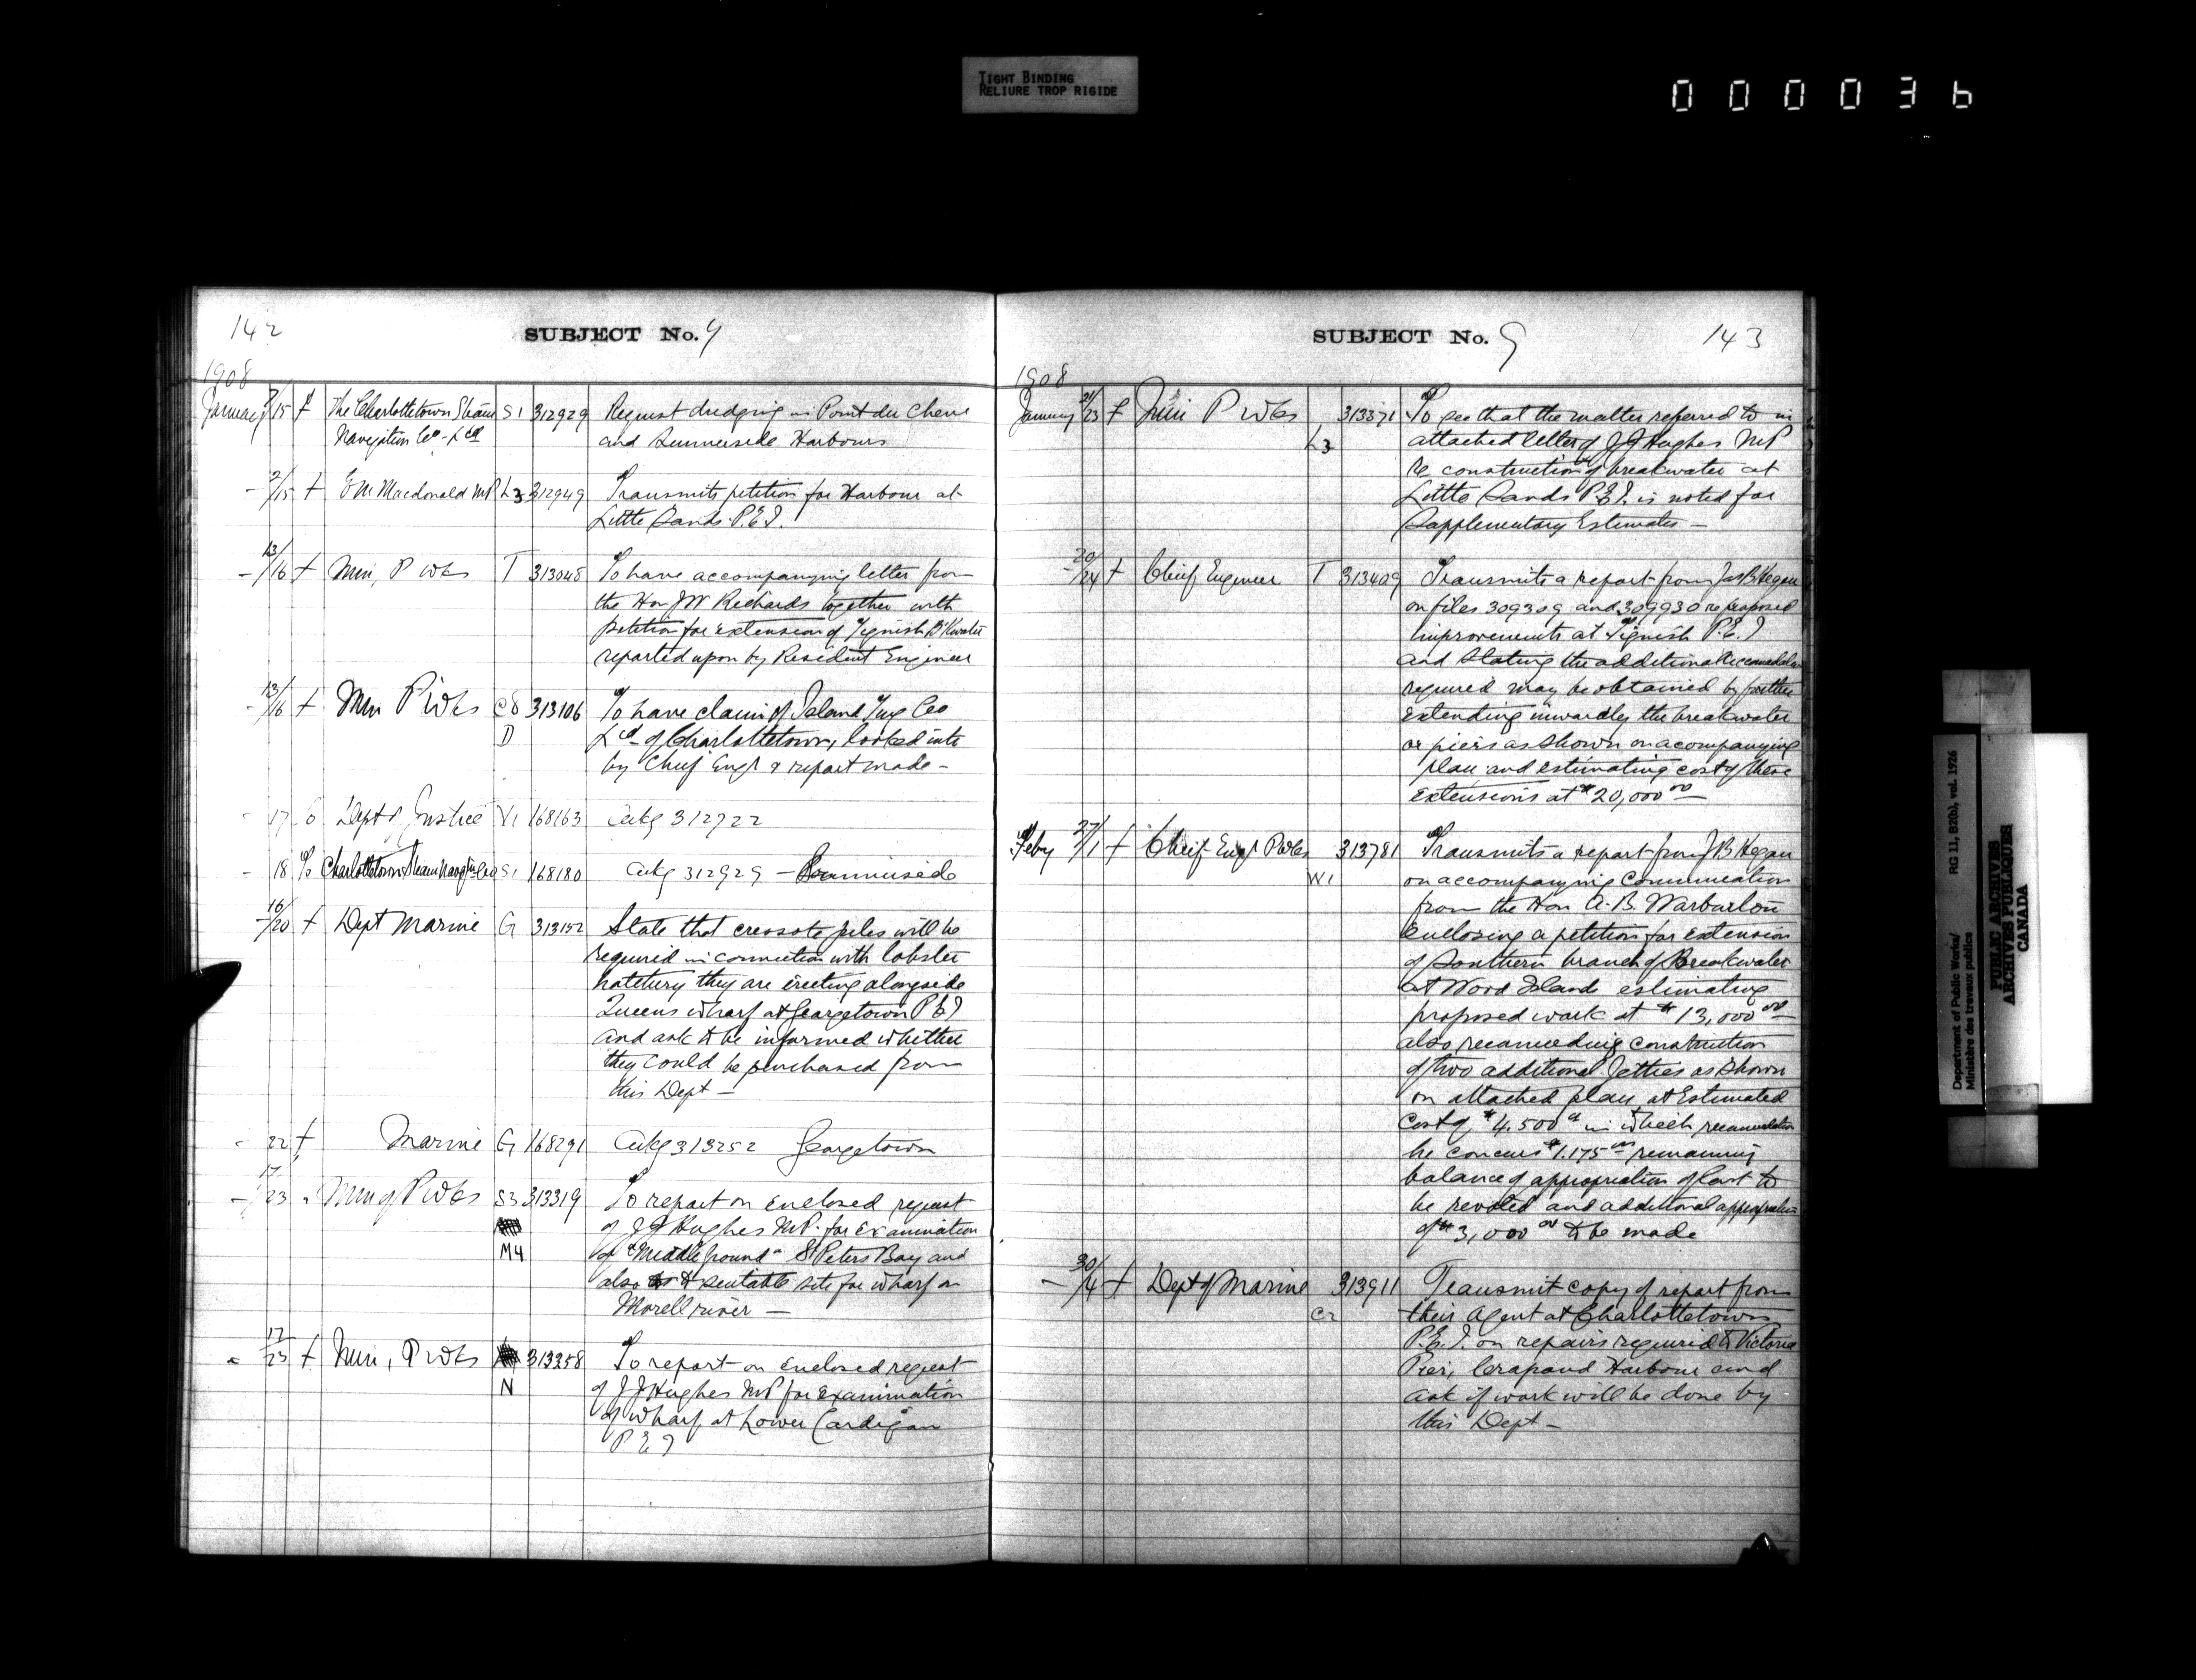 TIGHT BINDING
RELIURE TROP RIGIDE
000036
142
SUBJECT No. 9
1908
January 8/15 f The Charlottetown Steam S1 312929 Request dredging in Point du Chene
Navigation Co - Ltd and Summerside Harbours
- 2/15 f E M Macdonald MP L3 312949 Transmits petition for Harbour at
Little Sands P.E.I.
- 13/16 f Min, P Wks T 313048 To have accompanying letter from
the Hon J W Richards together with
petition for extension of Tignish B'Kwater
reported upon by Resident Engineer
- 13/16 f Min P Wks C8 313106 To have claim of Island Tug Co
D Ltd of Charlottetown, looked into
by Chief Engr & report made -
- 17 6 Dept of Justice V1 168163 Ackg 312722
- 18 % Charlottetown Steam Navgtn Co S1 168180 Ackg 312929 - Summerside
- 16/20 f Dept Marine G 313152 State that creosote piles will be
required in connection with lobster
hatchery they are erecting alongside
Queens Wharf at Georgetown P E I
and ask to be informed whether
they could be purchased from
this Dept -
- 22 f Marine G 168291 Ackg 313252 Georgetown
- 17/23 " Min of P Wks S3 313319 To report on enclosed request
of J J Hughes M.P. for Examination
M4 of "Middle ground" St Peters Bay and
also suitable site for wharf on
Morell river -
" 17/23 f Min, P Wks 313358 To report on enclosed request
N of J J Hughes MP for Examination
of wharf at Lower Cardigan
P E I
SUBJECT No. 9
143
1908
January 21/23 f Min P Wks 313371 To see that the matter referred to in
L3 attached letter of J J Hughes MP
re construction of breakwater at
Little Sands P.E.I. is noted for
Supplementary Estimates -
- 20/24 f Chief Engineer T 313409 Transmits a report from Jas B Hegan
on files 309309 and 309930 re proposed
improvements at Tignish P.E.I
and stating the additional accomodation
required may be obtained by further
extending inwardly the breakwater
or piers as shown on acompanying
plan and estimating cost of these
extensions at $20,000 00
Feby 27/1 f Chief Engr P Wks 313781 Transmits a report from J B Hegan
W1 on accompanying Communication
from the Hon A. B. Warburton
enclosing a petition for extension
of Southern branch of Breakwater
at Wood Islands estimating
proposed work at $13,000 00
also recomending construction
of two additional Jetties as shown
on attached plan at Estimated
cost of $4,500 00 in which recomendation
he concurs $1.175 00 remaining
balance of appropriation of last to
be revoted and additional appropriation
of $3,000 00 to be made
- 30/4 f Dept of Marine 313911 Transmit copy of report from
C2 their Agent at Charlottetown
P.E.I. on repairs required to Victoria
Pier, Crapaud Harbour and
ask if work will be done by
this Dept -
Department of Public Works/
Ministère des travaux publics
RG 11, B2(b), vol. 1926
PUBLIC ARCHIVES
ARCHIVES PUBLIQUES
CANADA